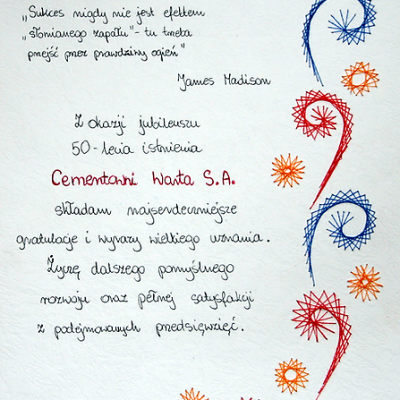 „Sukces nigdy nie jest efektem
„słomianego zapału"- tu trzeba
przejść przez prawdziwy ogień"
James Madison
Z okazji jubileuszu
50-lecia istnienia
Cementowni Warta S.A.
składam najserdeczniejsze
gratulacje i wyrazy wielkiego uznania.
Życzę dalszego pomyślnego
rozwoju oraz pełnej satysfakcji
z podejmowanych przedsięwzięć.